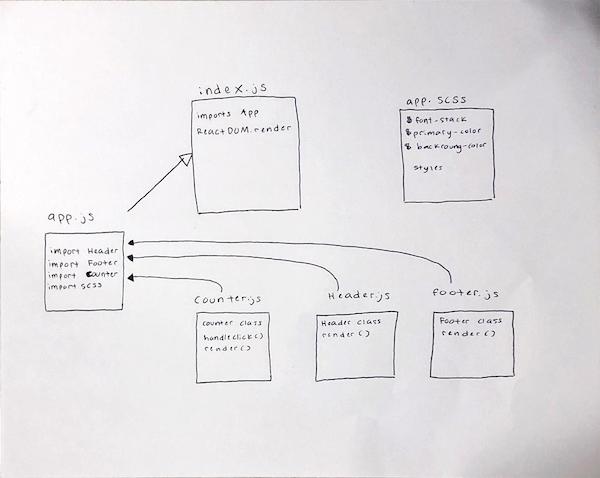 index.js
imports App
ReactDOM.render
app.scss
$ font-stack
$ primary-color
$ backroung-color
styles
app.js
import Header
import Footer
import Counter
import SCSS
Counter.js
counter class
handleclick()
render()
Header.js
Header class
render()
footer.js
Footer class
render()